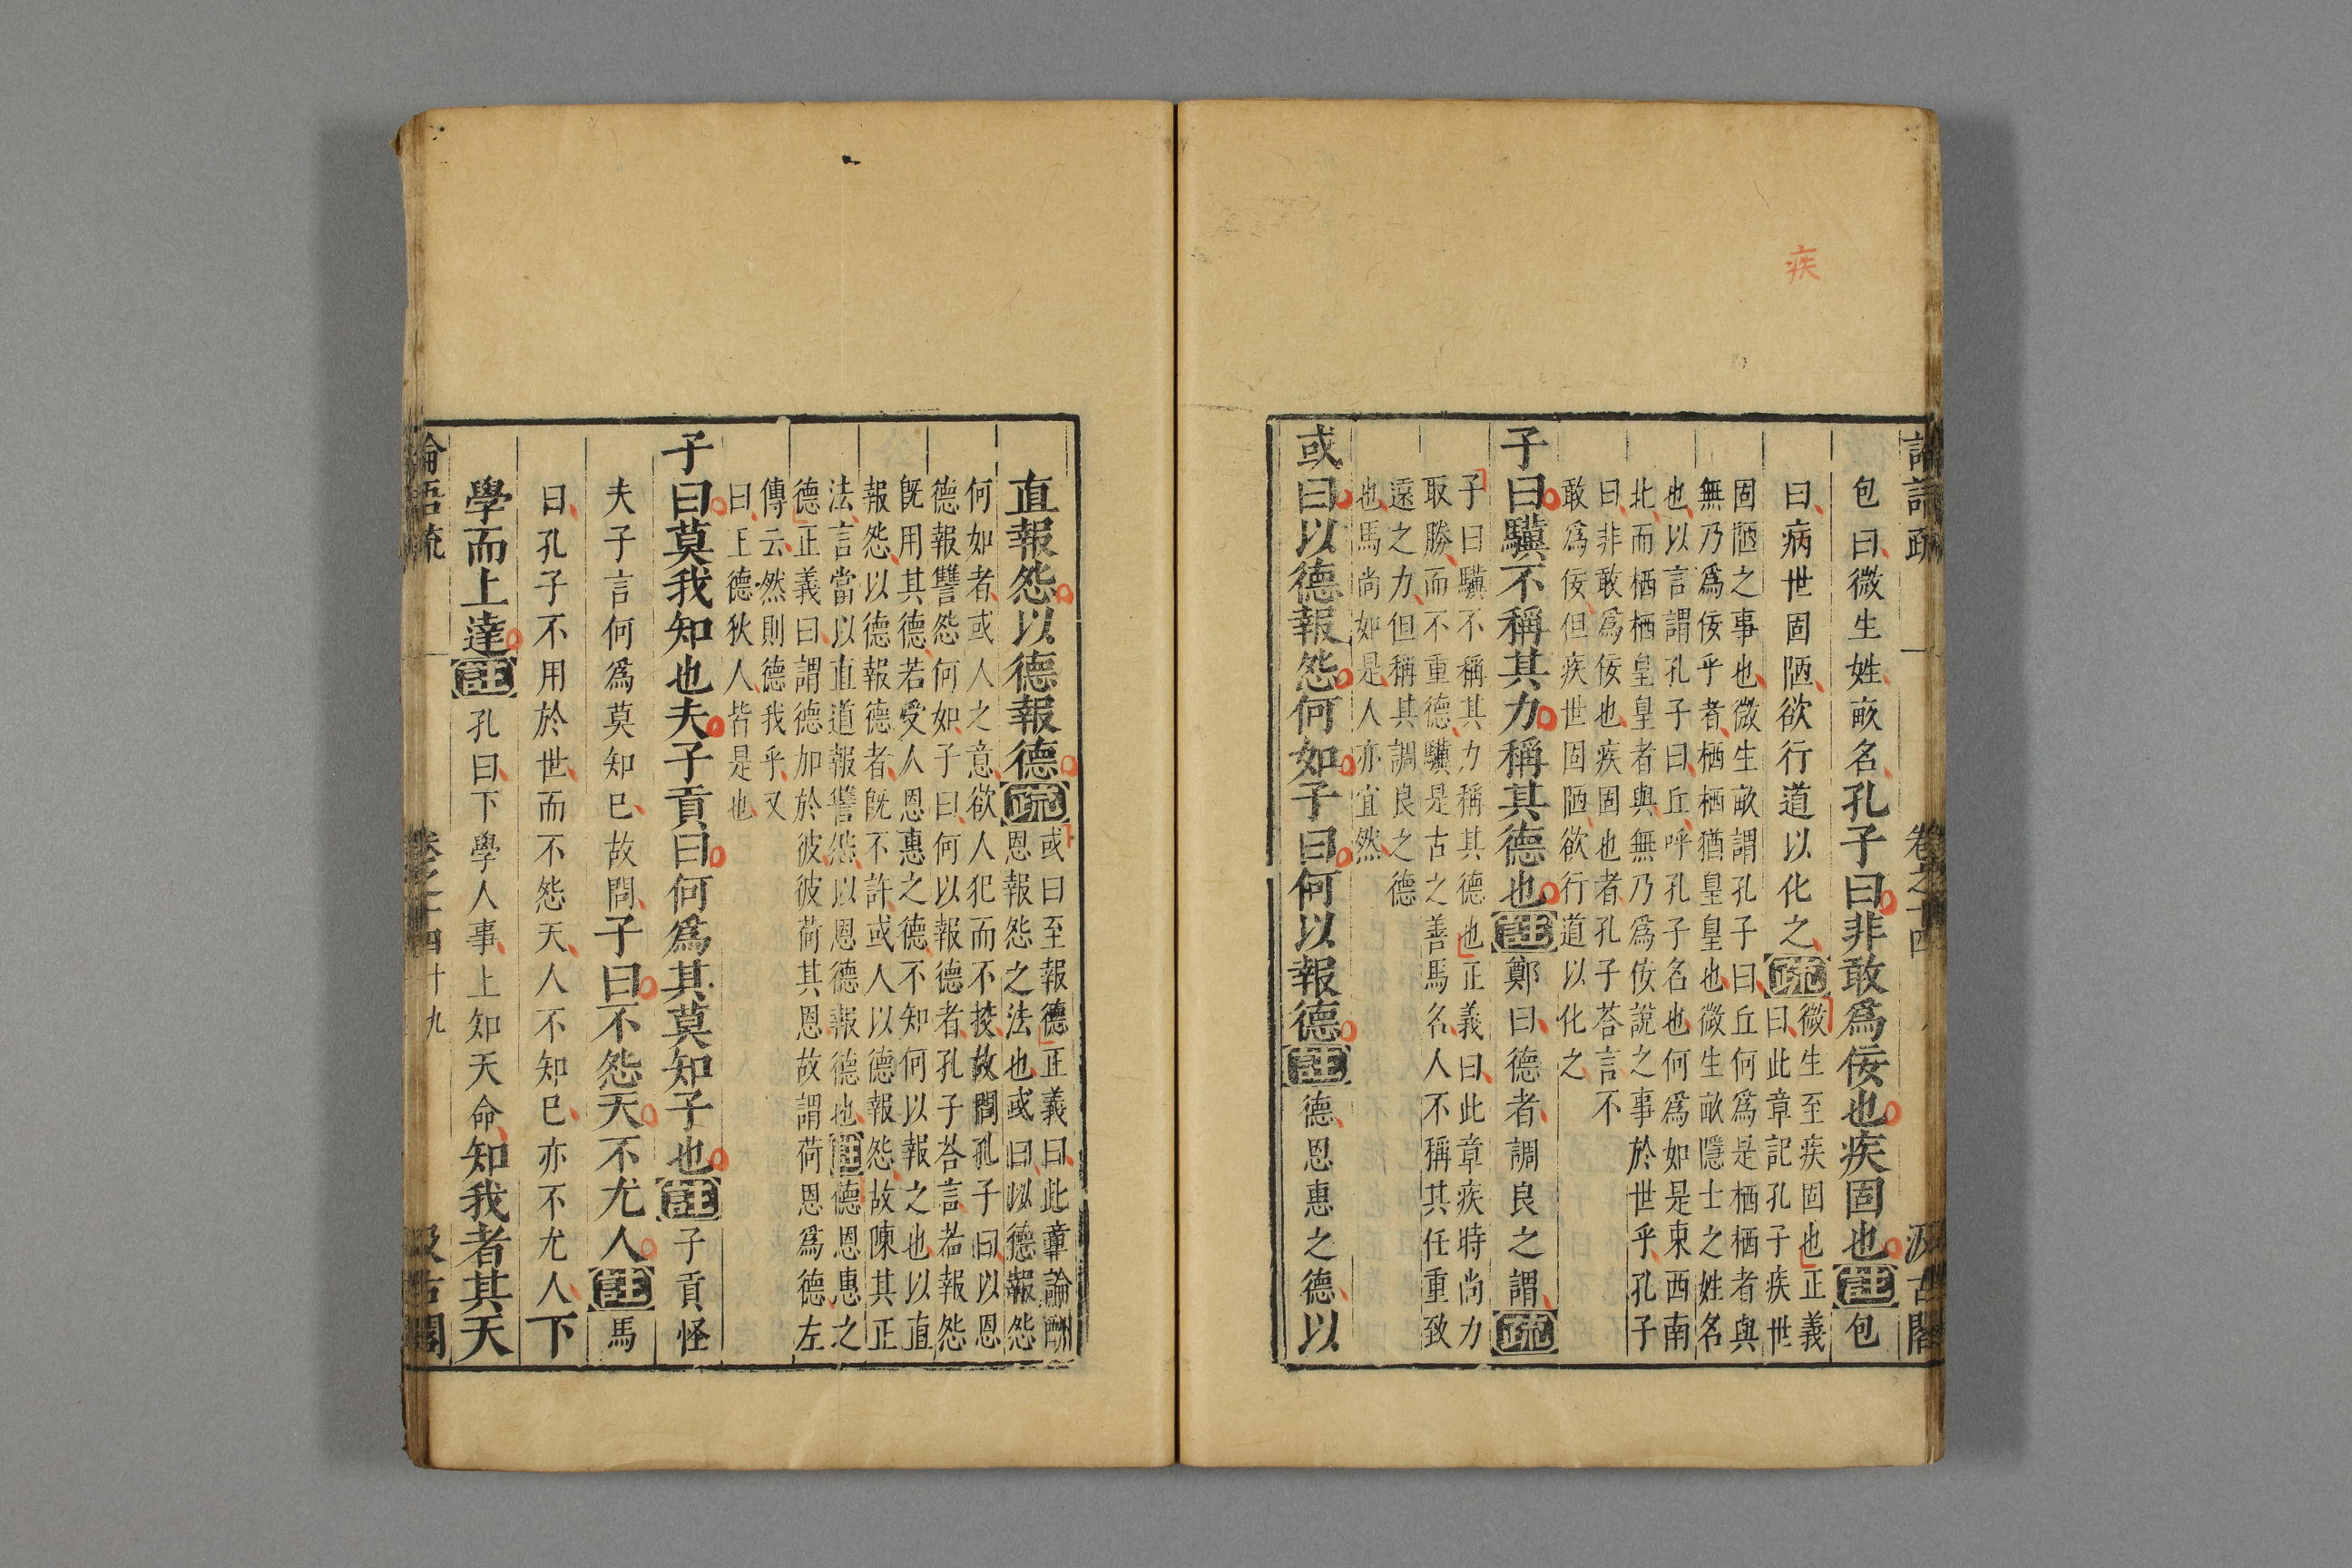 疾
論語疏 卷之十四 汲古閣
包曰微生姓畝名孔子曰非敢爲佞也疾固也註包
曰病世固陋欲行道以化之疏微生至疾固也正義
曰此章記孔子疾世
固陋之事也微生畝謂孔子曰丘何爲是栖栖者與
無乃爲佞乎者栖栖猶皇皇也微生畝隱士之姓名
也以言謂孔子曰丘呼孔子名也何爲如是東西南
北而栖栖皇皇者與無乃爲佞說之事於世乎孔子
曰非敢爲佞也疾固也者孔子荅言不
敢爲佞但疾世固陋欲行道以化之
子曰驥不稱其力稱其德也註鄭曰德者調良之謂疏
子曰驥不稱其力稱其德也正義曰此章疾時尚力
取勝而不重德驥是古之善馬名人不稱其任重致
遠之力但稱其調良之德
也馬尚如是人亦宜然
或曰以德報怨何如子曰何以報德註德恩惠之德以
直報怨以德報德疏或曰至報德正義曰此章論酬
恩報怨之法也或曰以德報怨
何如者或人之意欲人犯而不挍故問孔子曰以恩
德報讐怨何如子曰何以報德者孔子荅言若報怨
旣用其德若受人恩惠之德不知何以報之也以直
報怨以德報德者旣不許或人以德報怨故陳其正
法言當以直道報讐怨以恩德報德也註德恩惠之
德正義曰謂德加於彼彼荷其恩故謂荷恩爲德左
傳云然則德我乎又
曰王德狄人皆是也
子曰莫我知也夫子貢曰何爲其莫知子也註子貢怪
夫子言何爲莫知已故問子曰不怨天不尤人註馬
曰孔子不用於世而不怨天人不知已亦不尤人下
學而上達註孔曰下學人事上知天命知我者其天
論語疏 卷之十四 十九 汲古閣